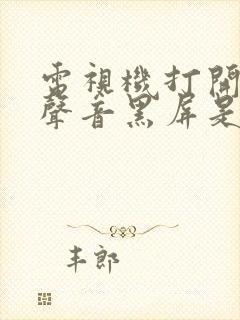 電視機打開
聲音黑屏是
丰郎